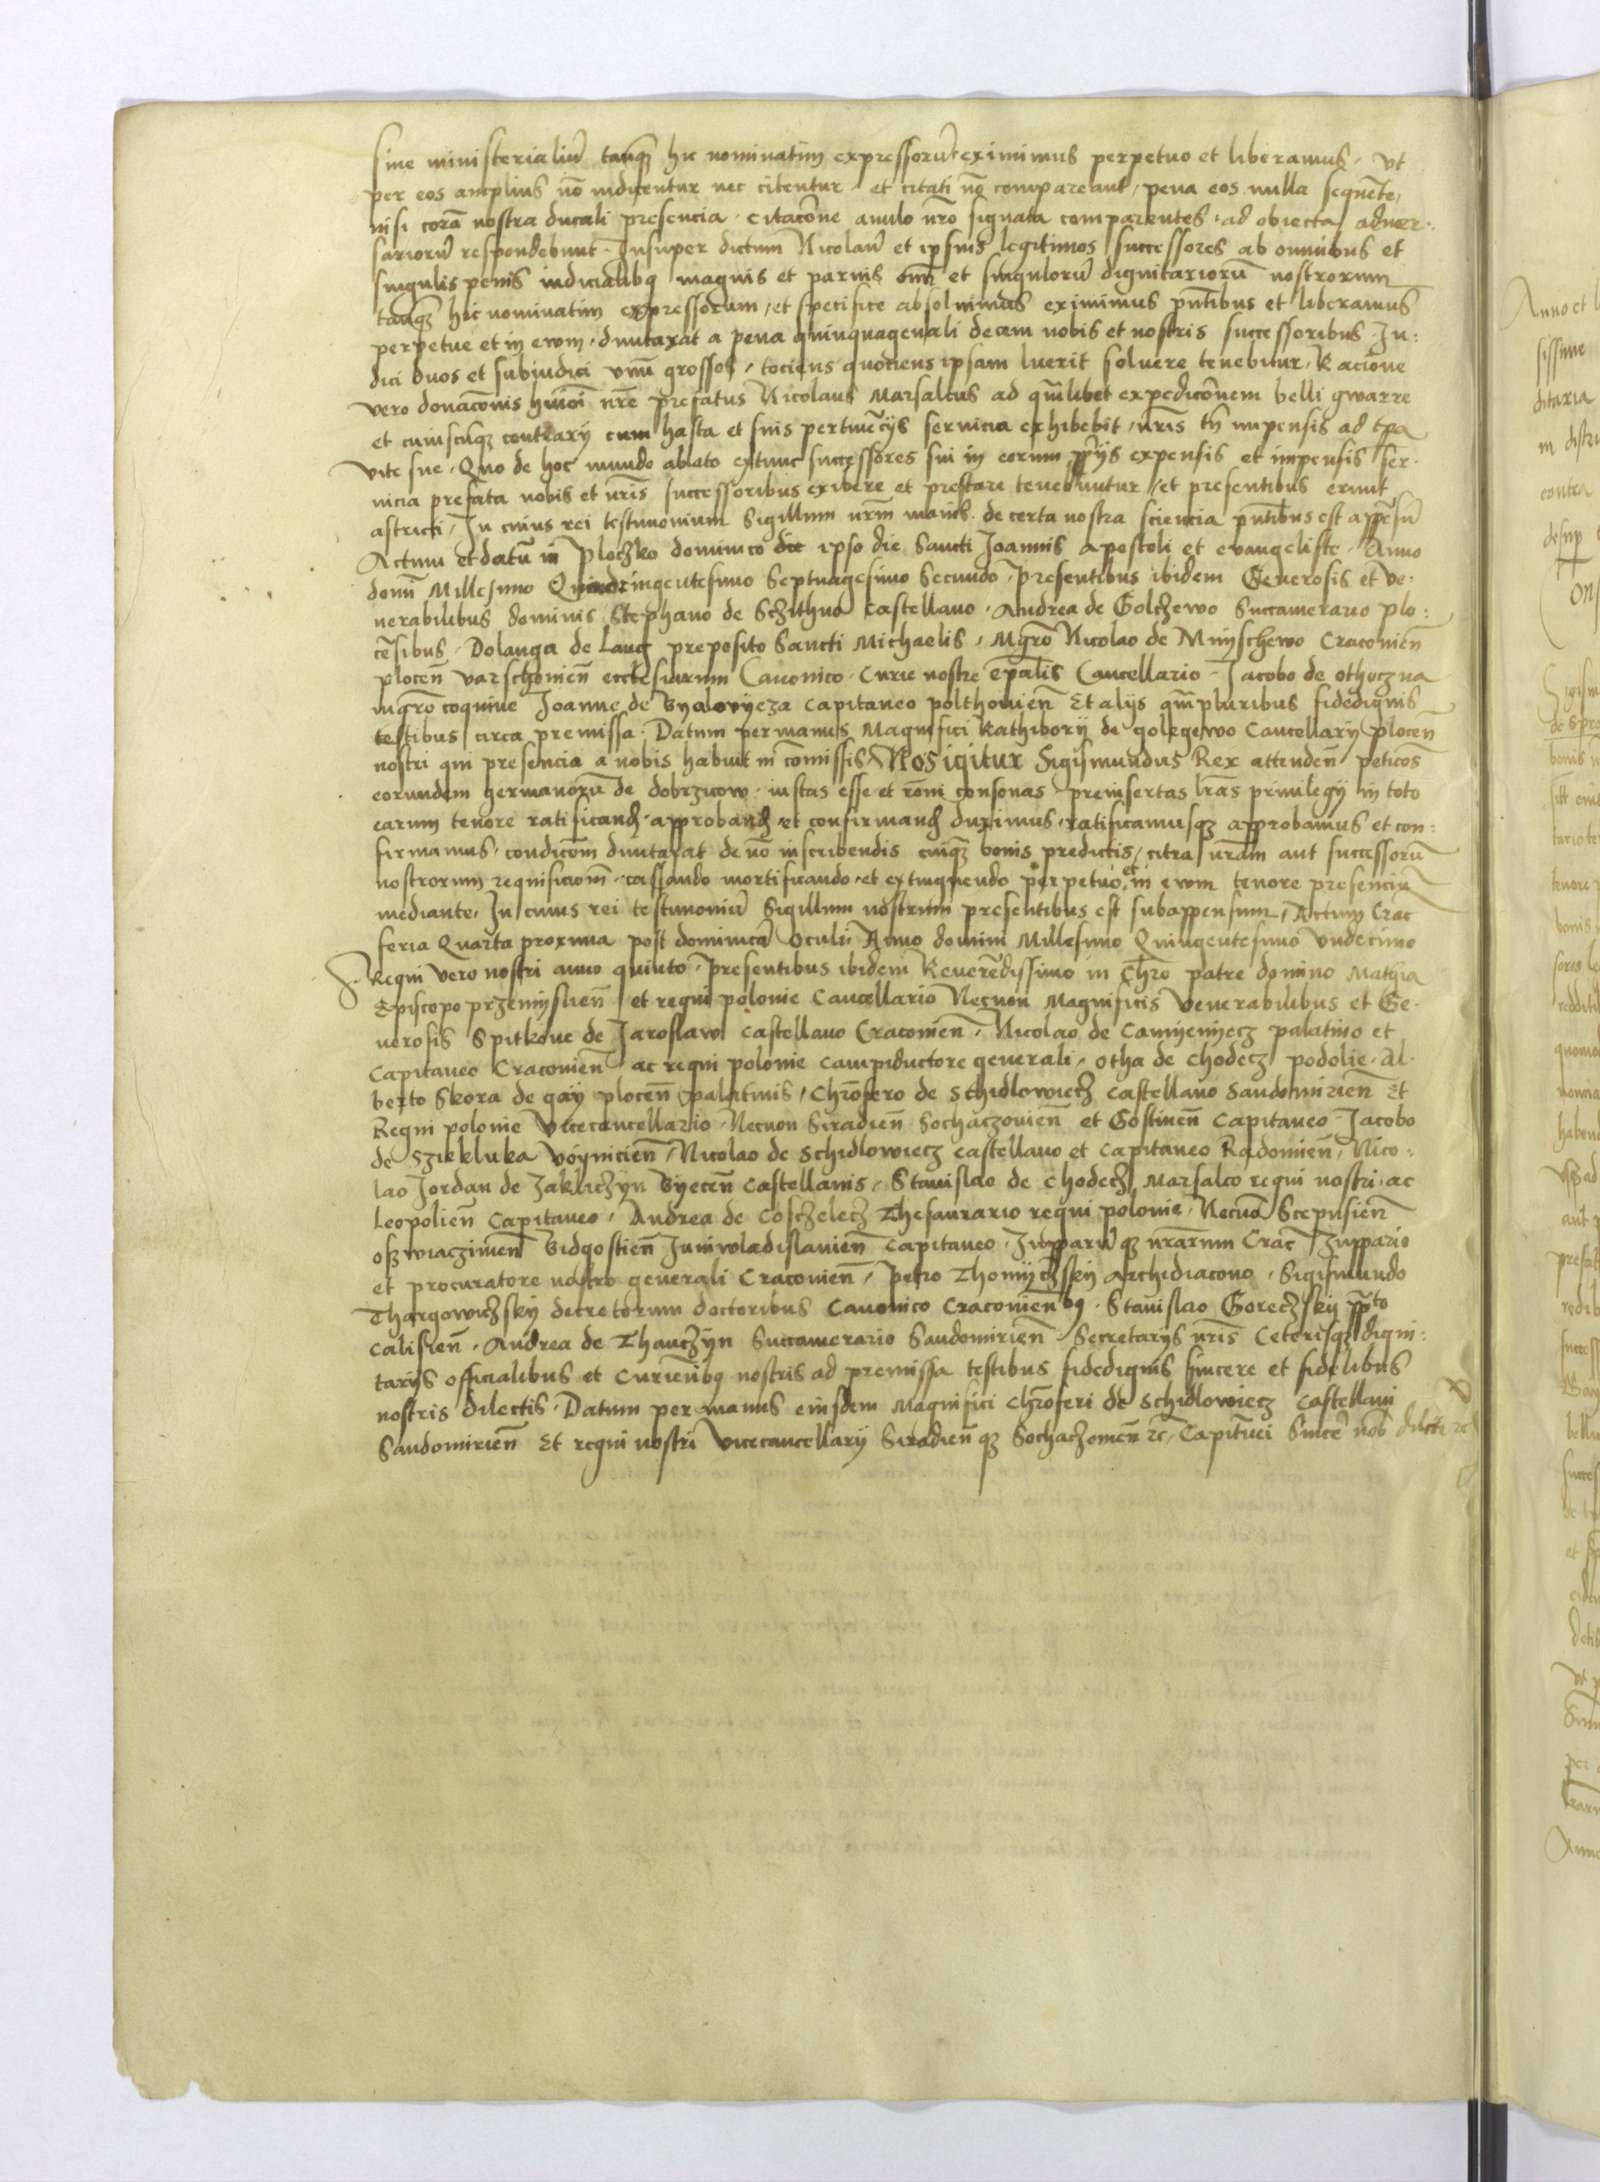 sive ministerialiũ tanq̃ hic nominatim expressorũ eximimus perpetuo et liberamus, vt
per eos amplius nõ iudicentur nec citentur, et citati nõ compareant, pena eos nulla sequẽte,
nisi corã nostra ducali presencia, citacõne anulo nr̃o signata comparentes, ad obiecta adver:
sariorũ respondebunt. Insuper dictum Nicolaũ et ipsius legitimos successores ab omnibus et
singulis penis iudicialibq magnis et parvis om̃ et singulorũ dignitariorũ nostrorum
tanq̃ hic nominatim expressorum, et specifice absolvimus eximimus pñtibus et liberamus
perpetue et in evom, duntaxat a pena quinquagenali decem nobis et nostris successoribus Iu:
dici duos et subiudici vnũ grossos, tociens quociens ipsam luerit solvere tenebitur, Racione
vero donacõnis hmõi nr̃e prefatus Nicolaus Marsalcus ad quãlibet expedicõnem belli gwarre
et cuiuscũq contrarÿ cum hasta et suis pertinẽcÿs servicia exhibebit, nr̃is tñ impensis ad tp̃a
vite sue, Quo de hoc mundo ablato extunc successores sui in eorum pp̃rÿs expensis et impensis ser:
vicia prefata nobis et nr̃is successoribus exibere et prestare tenebuntur, et presentibus erunt
astricti, In cuius rei testimonium Sigillum nr̃m maius de certa nostra sciencia pñtibus est appẽsũ
Actum et datũ in Ploczko dominico die ipso die Sancti Joannis apostoli et evangeliste, Anno
domĩ Millesimo Quadringentesimo Septuagesimo Secundo, presentibus ibidem Generosis et Ve:
nerabilibus dominis, Stephano de Schithno Castellano, Andrea de Golczewo Succamerario plo:
cẽsibus, Dolanga de Laug preposito Sancti Michaelis, Mgr̃o Nicolao de Mnyschewo Cracovieñ
ploceñ varschovieñ ecclesiarum Canonico, Curie nostre ep̃alis Cancellario, Jacobo de othoczna
mgr̃o coquine Joanne de Byalovyeza Capitaneo polthovieñ Et alÿs qm̃pluribus fidedignis
testibus circa premissa. Datum per manus Magnifici Rathiborÿ de golegewo Cancellarÿ ploceñ
nostri qui presencia a nobis habuit in cõmissis. Nos igitur Sigismundus Rex attendeñ peticões
eorundem germanorũ de dobrzicow, iustas esse et rõni consonas preinsertas lr̃as privilegÿ in toto
earum tenore ratificand, approband et confirmand duximus, ratificamusq approbamus et con:
firmamus, condicõm duntaxat de nõ inscribendis cuiq̃ bonis predictis, citra nr̃am aut successorũ
nostrorum requisiciom̃, cassando mortificando, et extinguendo perpetuo, et in evom tenore presenciũ
mediante, In cuius rei testimoniũ Sigillum nostrum presentibus est subappensum, Actum Crac̃
feria Quarta proxima post dominicã Oculi, Anno domini Millesimo Quingentesimo Vndecimo
Regni vero nostri anno quinto, presentibus ibidem Reverẽdissimo in Chr̃o patre domino Mathia
Episcopo przemyslieñ et regni polonie Cancellario Necnon Magnificis Venerabilibus et Ge:
nerosis Spitkone de Jaroslaw Castellano Cracovieñ, Nicolao de Camyenyecz palatino et
Capitaneo Cracovieñ ac regni polonie campiductore generali, Otha de Chodecz podolie, Al:
berto Skora de gay ploceñ palatinis, Chr̃ofero de Schidlowiecz Castellano Sandomirieñ Et
Regni polonie Vicecancellario, Necnon Siradieñ Sochaczovieñ et Gostineñ Capitaneo, Jacobo
de Sziekluka Voÿnicieñ, Nicolao de Schidlowiecz castellano et Capitaneo Radomieñ, Nico:
lao Jordan de Zakliczÿn Byeceñ Castellanis, Stanislao de Chodecz Marsalco regni nostri, ac
Leopolieñ Capitaneo, Andrea de Cosczelecz Thesaurario regni polonie, Necnõ Scepusieñ
oszwiaczimeñ Bidgostieñ Juniwladislavieñ Capitaneo, Zupparũq nr̃arum Crac̃ Zuppario
et procuratore nostro generali Cracovieñ, Petro Thomÿczskÿ Archidiacono, Sigismundo
Thargowiczskÿ decretorum doctoribus Canonico Cracovieñbq, Stanislao Goreczskÿ pp̃to
Calisieñ, Andrea de Thanczÿn Succamerario Sandomirieñ, Secretarÿs nr̃is Ceterisq digni:
tarÿs officialibus et Curieñbq nostris ad premissa testibus fidedignis Sincere et fidelibus
nostris dilectis. Datum per manus eiusdem Magnifici Chr̃oferi de Schidlowiecz Castellani
Sandomirieñ Et regni nostri Vicecancellarÿ Siradieñ q Sochaczovieñ rc̃, Capitãei Sincẽ nob̃ dilcti rc̃